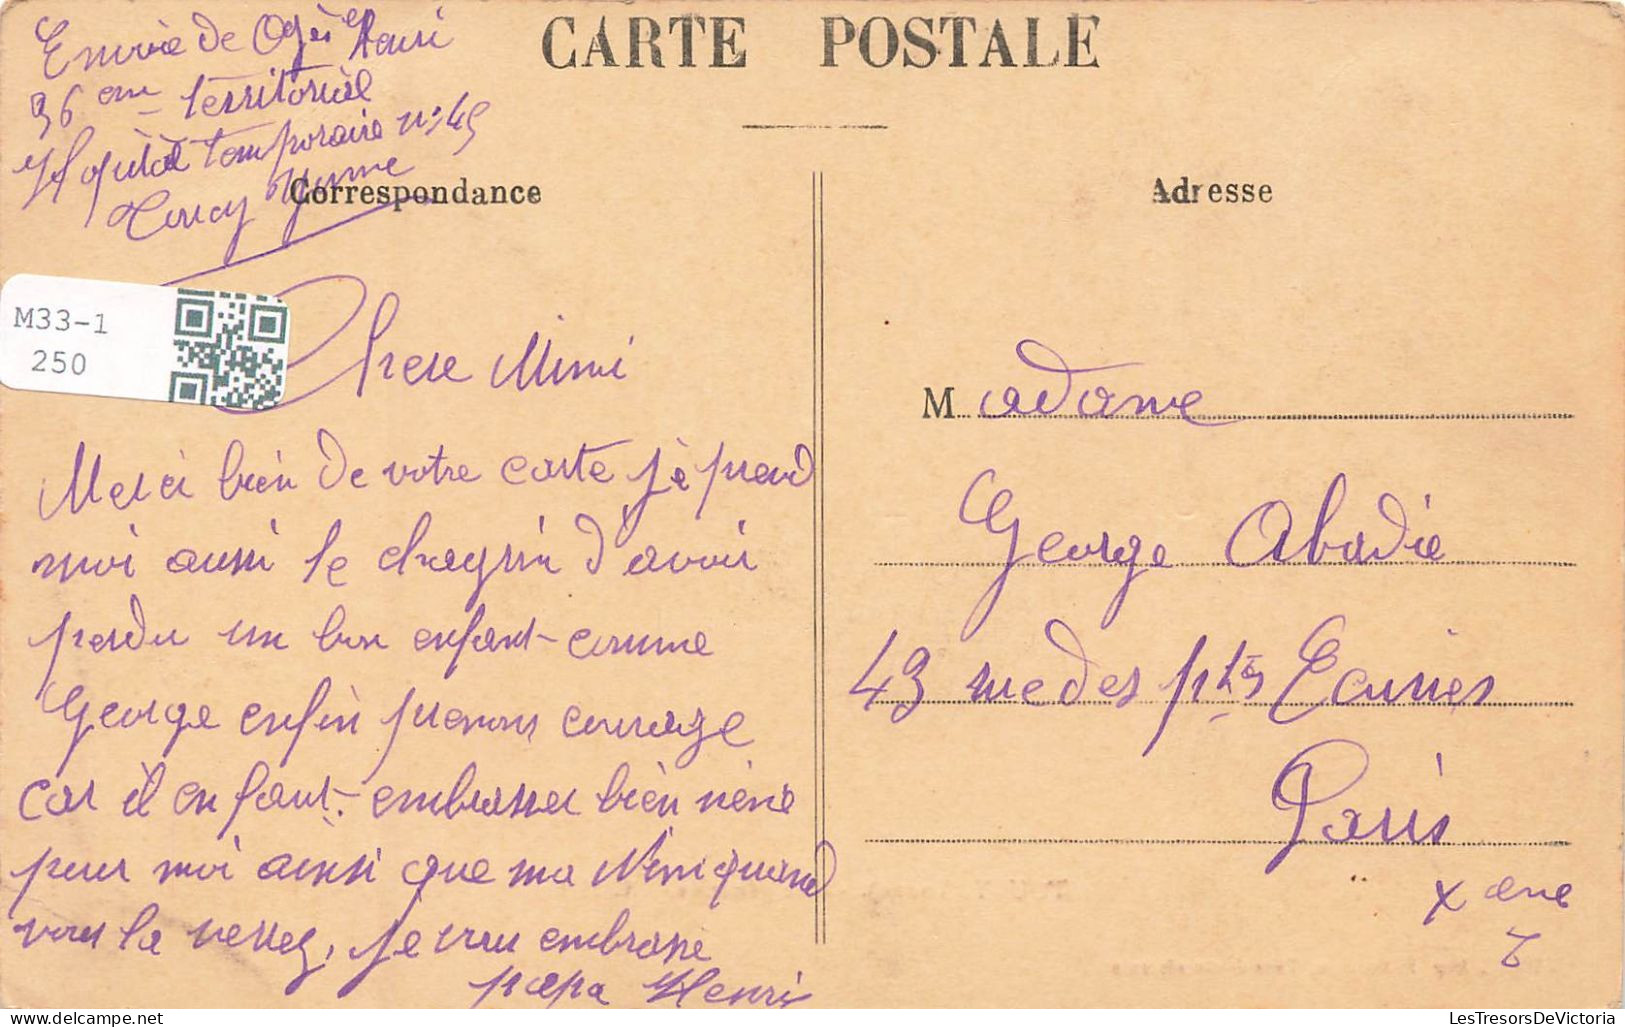 CARTE POSTALE
Envoie de Ogée Henri
36 em territorial
Hopital temporaire n° 45
Yonne
Correspondance
Adresse
M33-1
250
Chere Mimi
Merci bien de votre carte je prend
moi aussi le chagrin d'avoir
perdu un bon enfant comme
George enfin prenons courage
car il en faut. embrasser bien
pour moi ainsi que ma Nini quand
vous la verrez, je vous embrasse
papa Henri
Madame
George Abadie
43 rue des ptes Ecuries
Paris
X eme
les-tresors-de-victoria.delcampe.com
LesTresorsDeVictoria